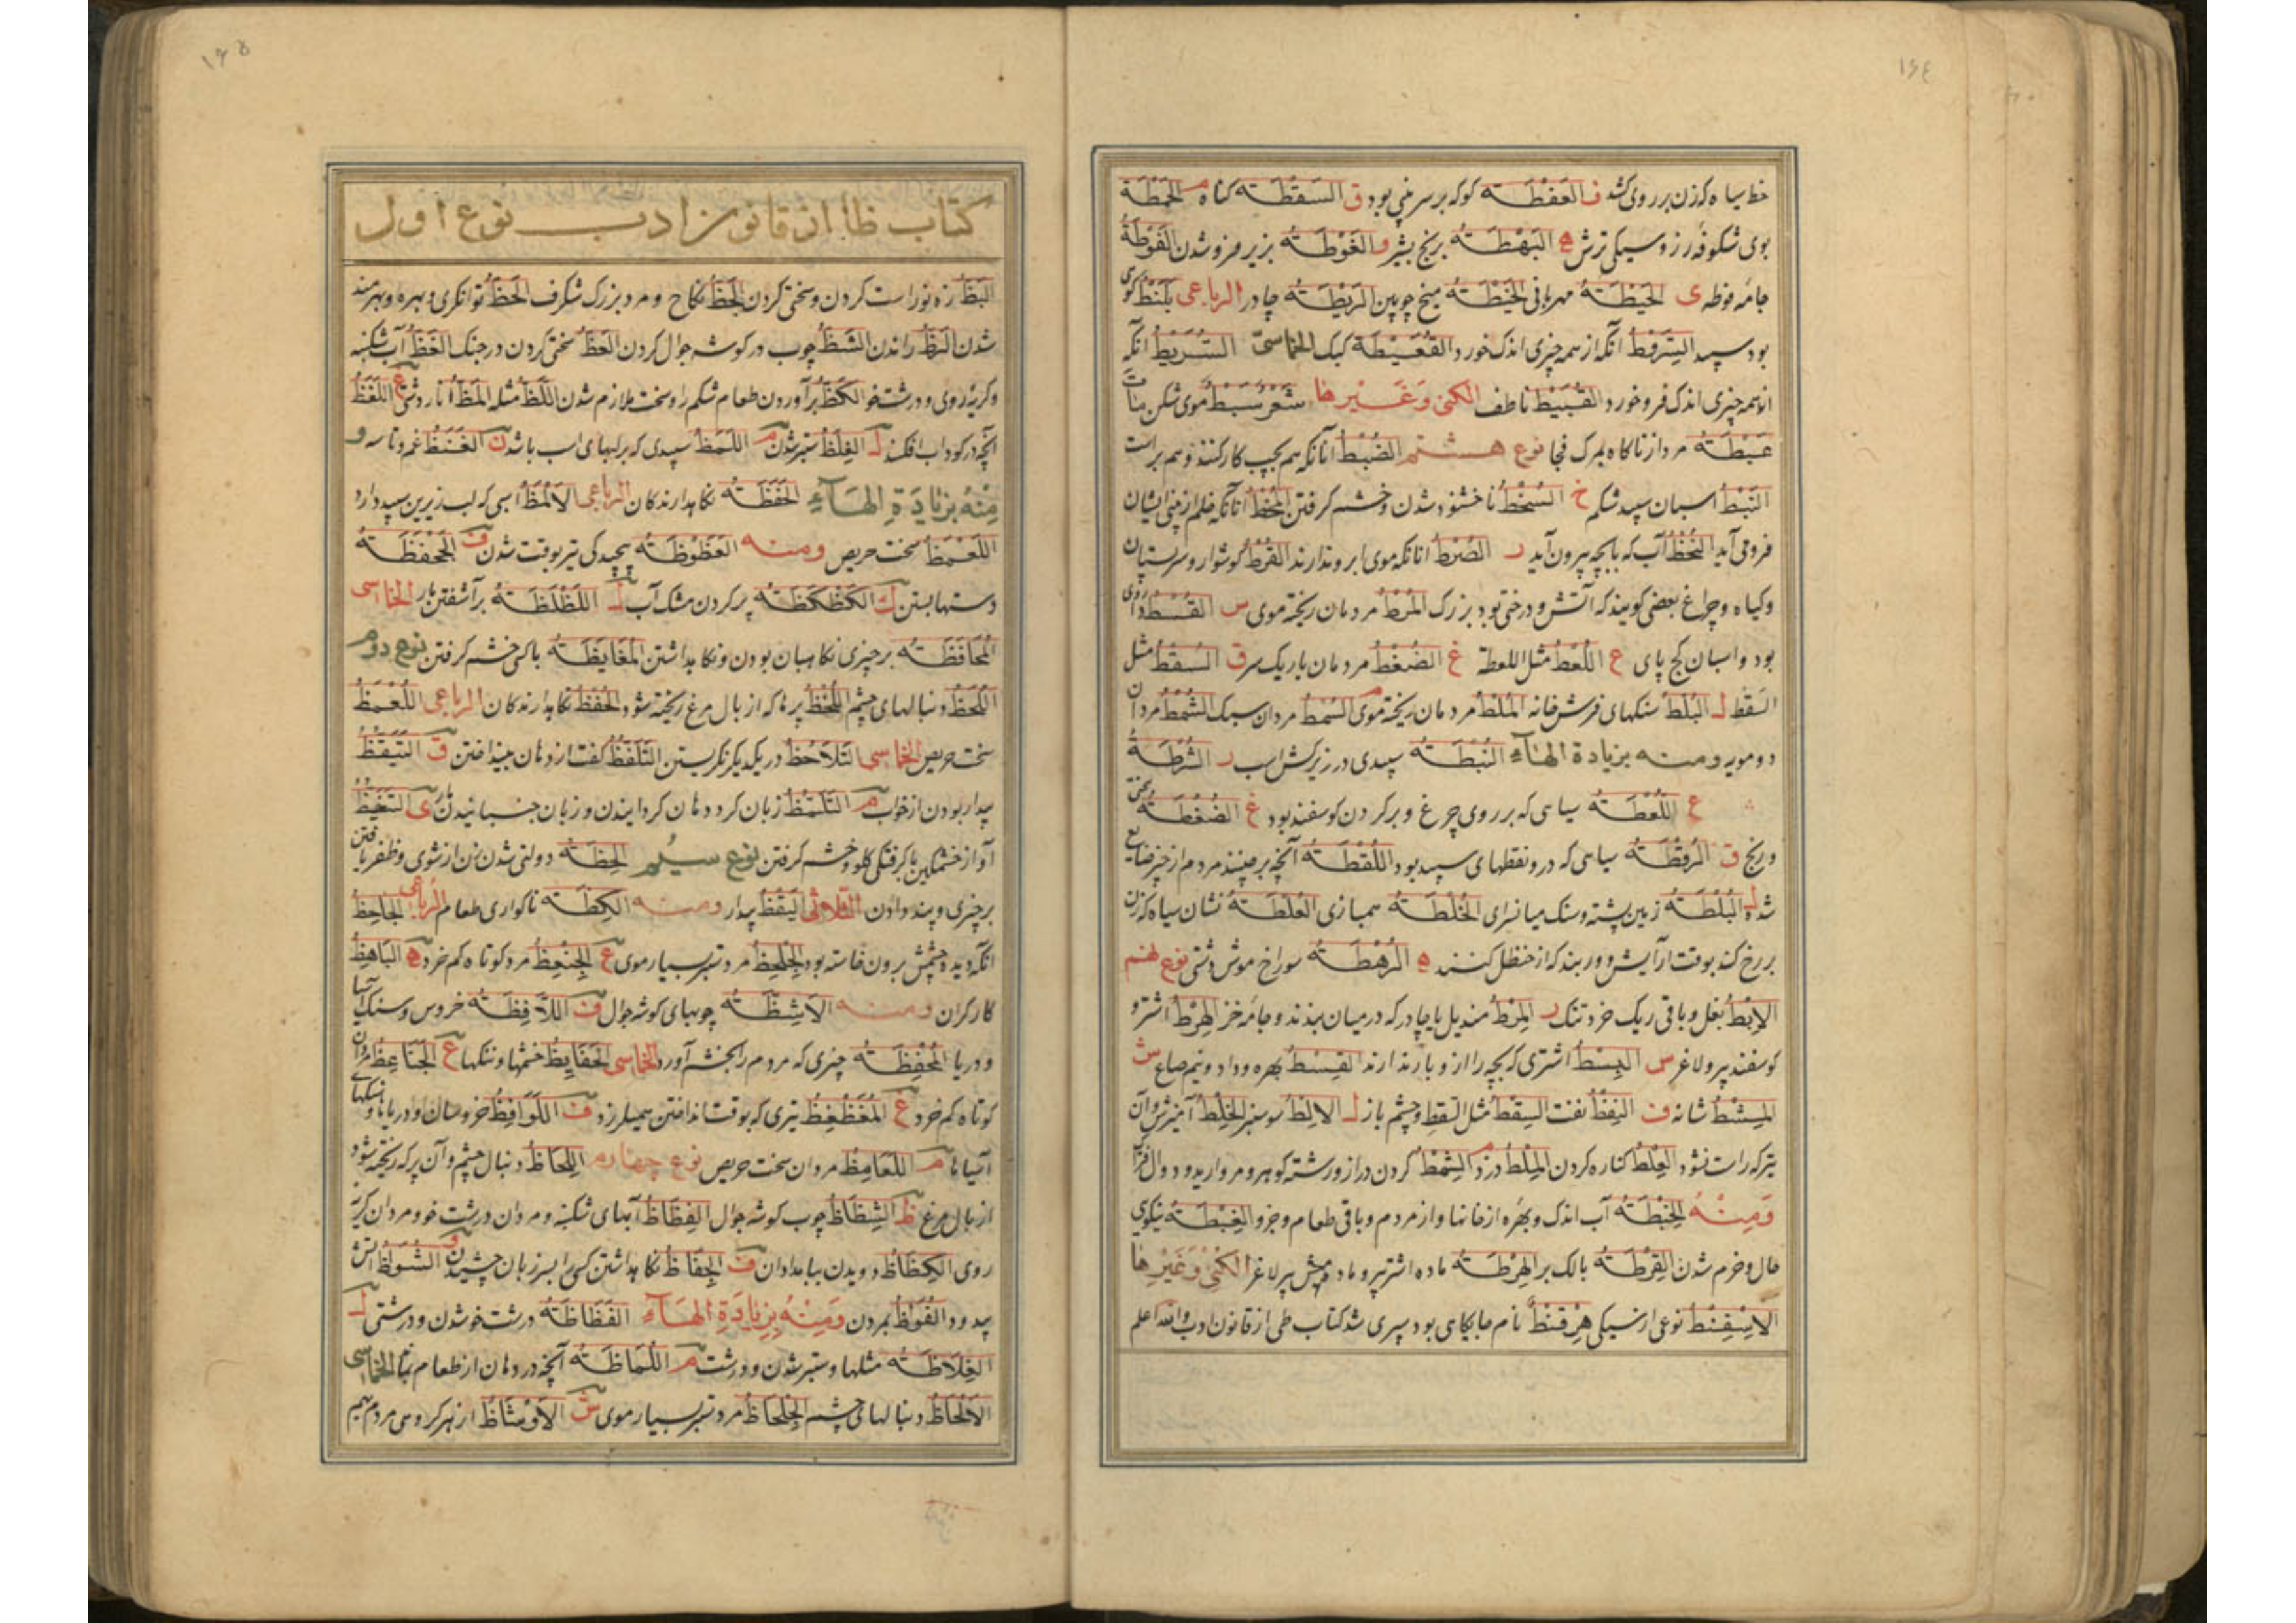 ١۶٤
خط سیاه که زن بر روی کشد ف العَفْطَـته کوکه بر سر بینی بود ق السَقطَـته کناه م الخَمْطَة
بوی شکوفه رز و سیکی ترش ه البَهْطَـتُه برنج بشیر و الغَوْطَـتُه بزیر فرو شدن الفُوطَةُ
جامه فوطه ی الحَیْطَـتُه مهربانی الخَیْطَـتُه میخ چوبین الرَیْطَـتُه چادر الرباعی بَلَنْط
بود سپید السَرَقطُ آنکه از همه چیزی اندک خورد القُعَیْطَة کبک الخماسیّ السُرَیطُ آنکه
از همه چیزی اندک فرو خورد القُبَیطُ ناطف الکنی وَغَیْرها شَعْرٌ سَبْطٌ موی شکن
عَبْطَـتُه مرد از ناکاه بمرک فجا نوع هشتم الضُبْطُ آنانکه هم بچپ کار کنند و هم براست
النُبْطُ اسبان سپید شکم خ السُخْطُ ناخشنود شدن و خشم کرفتن المُخْطُ آنانکه خلم از بینی ایشان
فرو می آید النُخْطُ آب که با بچه بیرون آید ر الضُرْطُ آنانکه موی ابرو ندارند القُرْطُ کوشوار و سر پستان
و کیاه و چراغ بعضی کویند که آتش و درختی بود بزرک المُرْطُ مردمان ریخته موی س القُسْطُ
بود و اسبان کج پای ع اللُعْطُ مثل اللعطة غ الضُغْطُ مردمان باریک سر ق السُقْطُ مثل
السَقْط ل البُلْطُ سنکهای فرش خانه المُلْطُ مردمان ریخته موی م السُمْطُ مردان سبک الشُمْطُ مردان
دو مویه ومنـه بزیادة الهاءِ النُبْطَـتُه سپیدی در زیر کش اسب ر الشُرْطَـةُ
ع اللُعْطَـتُه سیاهی که بر روی چرغ و بر کردن کوسفند بود غ الضُغْطَـتُه
و رنج ق الرُقْطَـتُه سیاهی که درو نقطهای سپید بود اللُقْطَـتُه آنچه بر چینند مردم از چیز ضایع
شده ل البُلْطَـتُه زمین پشته و سنک میان سرای الخُلْطَـتُه همبازی العُلْطَـتُه نشان سیاه که زن
بر رخ کند بوقت آرایش و وربند که از حنظل کنند ه الرُهْطَـتُه سوراخ موش دشتی نوع نهم
الاِبْطُ بغل و باقی ریک خرد تنک ر المِرْطُ مندیل یا چادر که در میان بندند و جامه خز الهِرْطُ اشتر و
کوسفند پیر و لاغر س البِسْطُ اشتری که بچه را ازو باز ندارند القِسْطُ بهره و داد و نیم صاع ش
المِشْطُ شانه ف النِفْطُ نفت السِقْطُ مثل السَقط و چشم باز ل الاِلطُ سوسنبر الخِلْطُ آمیزش و آن
تیر که راست نشود العِلْطُ کناره کردن المِلْطُ دزد م السِمْطُ کردن دراز و رشته کوهر و مروارید و دوال
وَمِنْـهُ الخِبْطَـتُه آب اندک و بهره از خانها و از مردم و باقی طعام و جزو الغِبْطَـتُه نیکویی
حال و خرم شدن القِرْطَـتُه بالک بر الهِرْطَـتُه ماده اشتر پیر و ماده میش پیر لاغر الکُنی وَغَیْرِها
الاِسْفِنْطُ نوعی از سیکی هِرْقِنْطُ نام جایکاهی بود سپری شد کتاب طی از قانون ادب والله اعلم
١۶۵
کتاب ظا از قانون ادب نوع اول
البَظُّ زه نو راست کردن و سختی کردن الجَظُّ نکاح و مرد بزرک شکرف الحَظُّ توانکری و بهره و بهرمند
شدن الرَظُّ راندن الشَظُّ چوب در کوشه جوال کردن العَظُّ سختی کردن در جنک الفَظُّ آب شکنبه
و کریه روی و درشت خو الکَظُّ برآوردن طعام شکم را و سخت ملازم شدن اللَظُّ مثله المَظُّ انار دشتی
آنچه در کوداب افکنند ل الغِلَظُ ستبر شدن م اللَمَظُ سپیدی که بر لبهای اسب باشد ن الغَنَظُ غم و تاسه و
مِنْهُ بزِیَادَةِ الهَاءِ الحَفَظَـتُه نکاه دارندکان الرباعی الاَلْمَظُ اسبی که لب زیرین سپید دارد
اللَعْمَظُ سخت حریص ومنـه العَظْوَظَـتُه پیچیدکی تیر بوقت شدن ف الجَحْفَظَـتُه
دستها بستن ک الکَظْکَظَـتُه پر کردن مشک آب ل اللَظْلَظَـتُه برآشفتن مار الخماسی
المُحافَظَـتُه بر چیزی نکاهبان بودن و نکاه داشتن المُغایَظَـتُه با کسی خشم کرفتن نوع دوم
اللُحُظُ دنبالهای چشم اللُحُظُ پرها که از بال مرغ ریخته شود الحُفَظُ نکاه دارندکان الرباعی اللُعْمُظُ
سخت حریص الخماسی التَلاحُظُ در یکدیکر نکریستن التَلَفُّظُ کفت از دهان بینداختن ق التَیَقُّظُ
بیدار بودن از خواب م التَلَمُّظُ زبان کرد دهان کردانیدن و زبان جنبانیدن ی التَغَیُّظُ
آواز خشمکین با کرفتکی کلو و خشم کرفتن نوع سیُم الحِظَـتُه دولتی شدن زن از شوی و ظفر یافتن
بر چیزی و پند دادن الثلاثی الیَقِظُ بیدار ومنـه الکِظَـتُه ناکواری طعام الرباعی الجاحِظُ
آنکه دیده چشمش برون خاسته بود الجِلْحِظُ مرد ستبر بسیار موی ع الجِنْعِظُ مرد کوتاه کم خرد ه الباهِظُ
کار کران ومنـه الاَشِظَّـتُه چوبهای کوشه جوال ف اللاَّفِظَـتُه خروس و سنک آسیا
و دریا المُحْفِظَـتُه چیزی که مردم را بخشم آورد الخماسی الحَفایِظُ خشمها و ننکها ع الجَناعِظُ مردان
کوتاه کم خرد ع المُعَظْعِظُ تیری که بوقت انداختن همیلرزد ف اللَوافِظُ خروسان و دریاها و سنکهای
آسیاها م اللَعامِظُ مردان سخت حریص نوع چهارم اللِحاظُ دنبال چشم و آن پر که ریخته شود
از بال مرغ ظ الشِظاظُ چوب کوشه جوال الفِظاظُ آبهای شکنبه و مردان درشت خو و مردان کریه
روی الکِظاظُ دویدن بامدادان ف الحِفاظُ نکاه داشتن کسی را بسر زبان چشیدن و الشُواظُ آتش
بی دود الفُواظُ بمردن وَمِنْهُ بِزِیَادَةِ الهَاءِ الفَظاظَـتُه درشت خو شدن و درشتی ل
الغِلاظَـتُه مثلها و ستبر شدن و درشت م اللُماظَـتُه آنچه در دهان از طعام بماند الخماسی
الاَلْحاظُ دنبالهای چشم الجِلْحاظُ مرد ستبر بسیار موی ش الاَوْشاظُ از هر کروهی مردم بهم